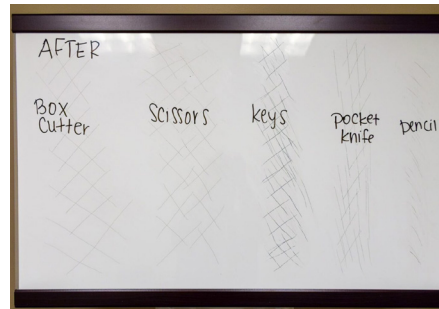 AFTER
BOX
Cutter
SCISSORS
keys
pocket
knife
pencil